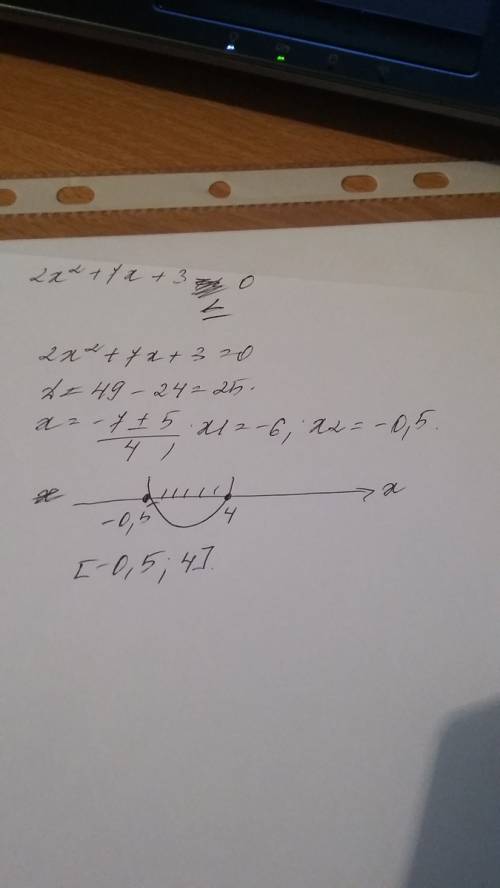 2x² + 7x + 3 ≤ 0
2x² + 7x + 3 = 0
D = 49 - 24 = 25.
x = (-7 ± 5)/4; x1 = -6; x2 = -0,5.
-0,5 4 x
[-0,5; 4].